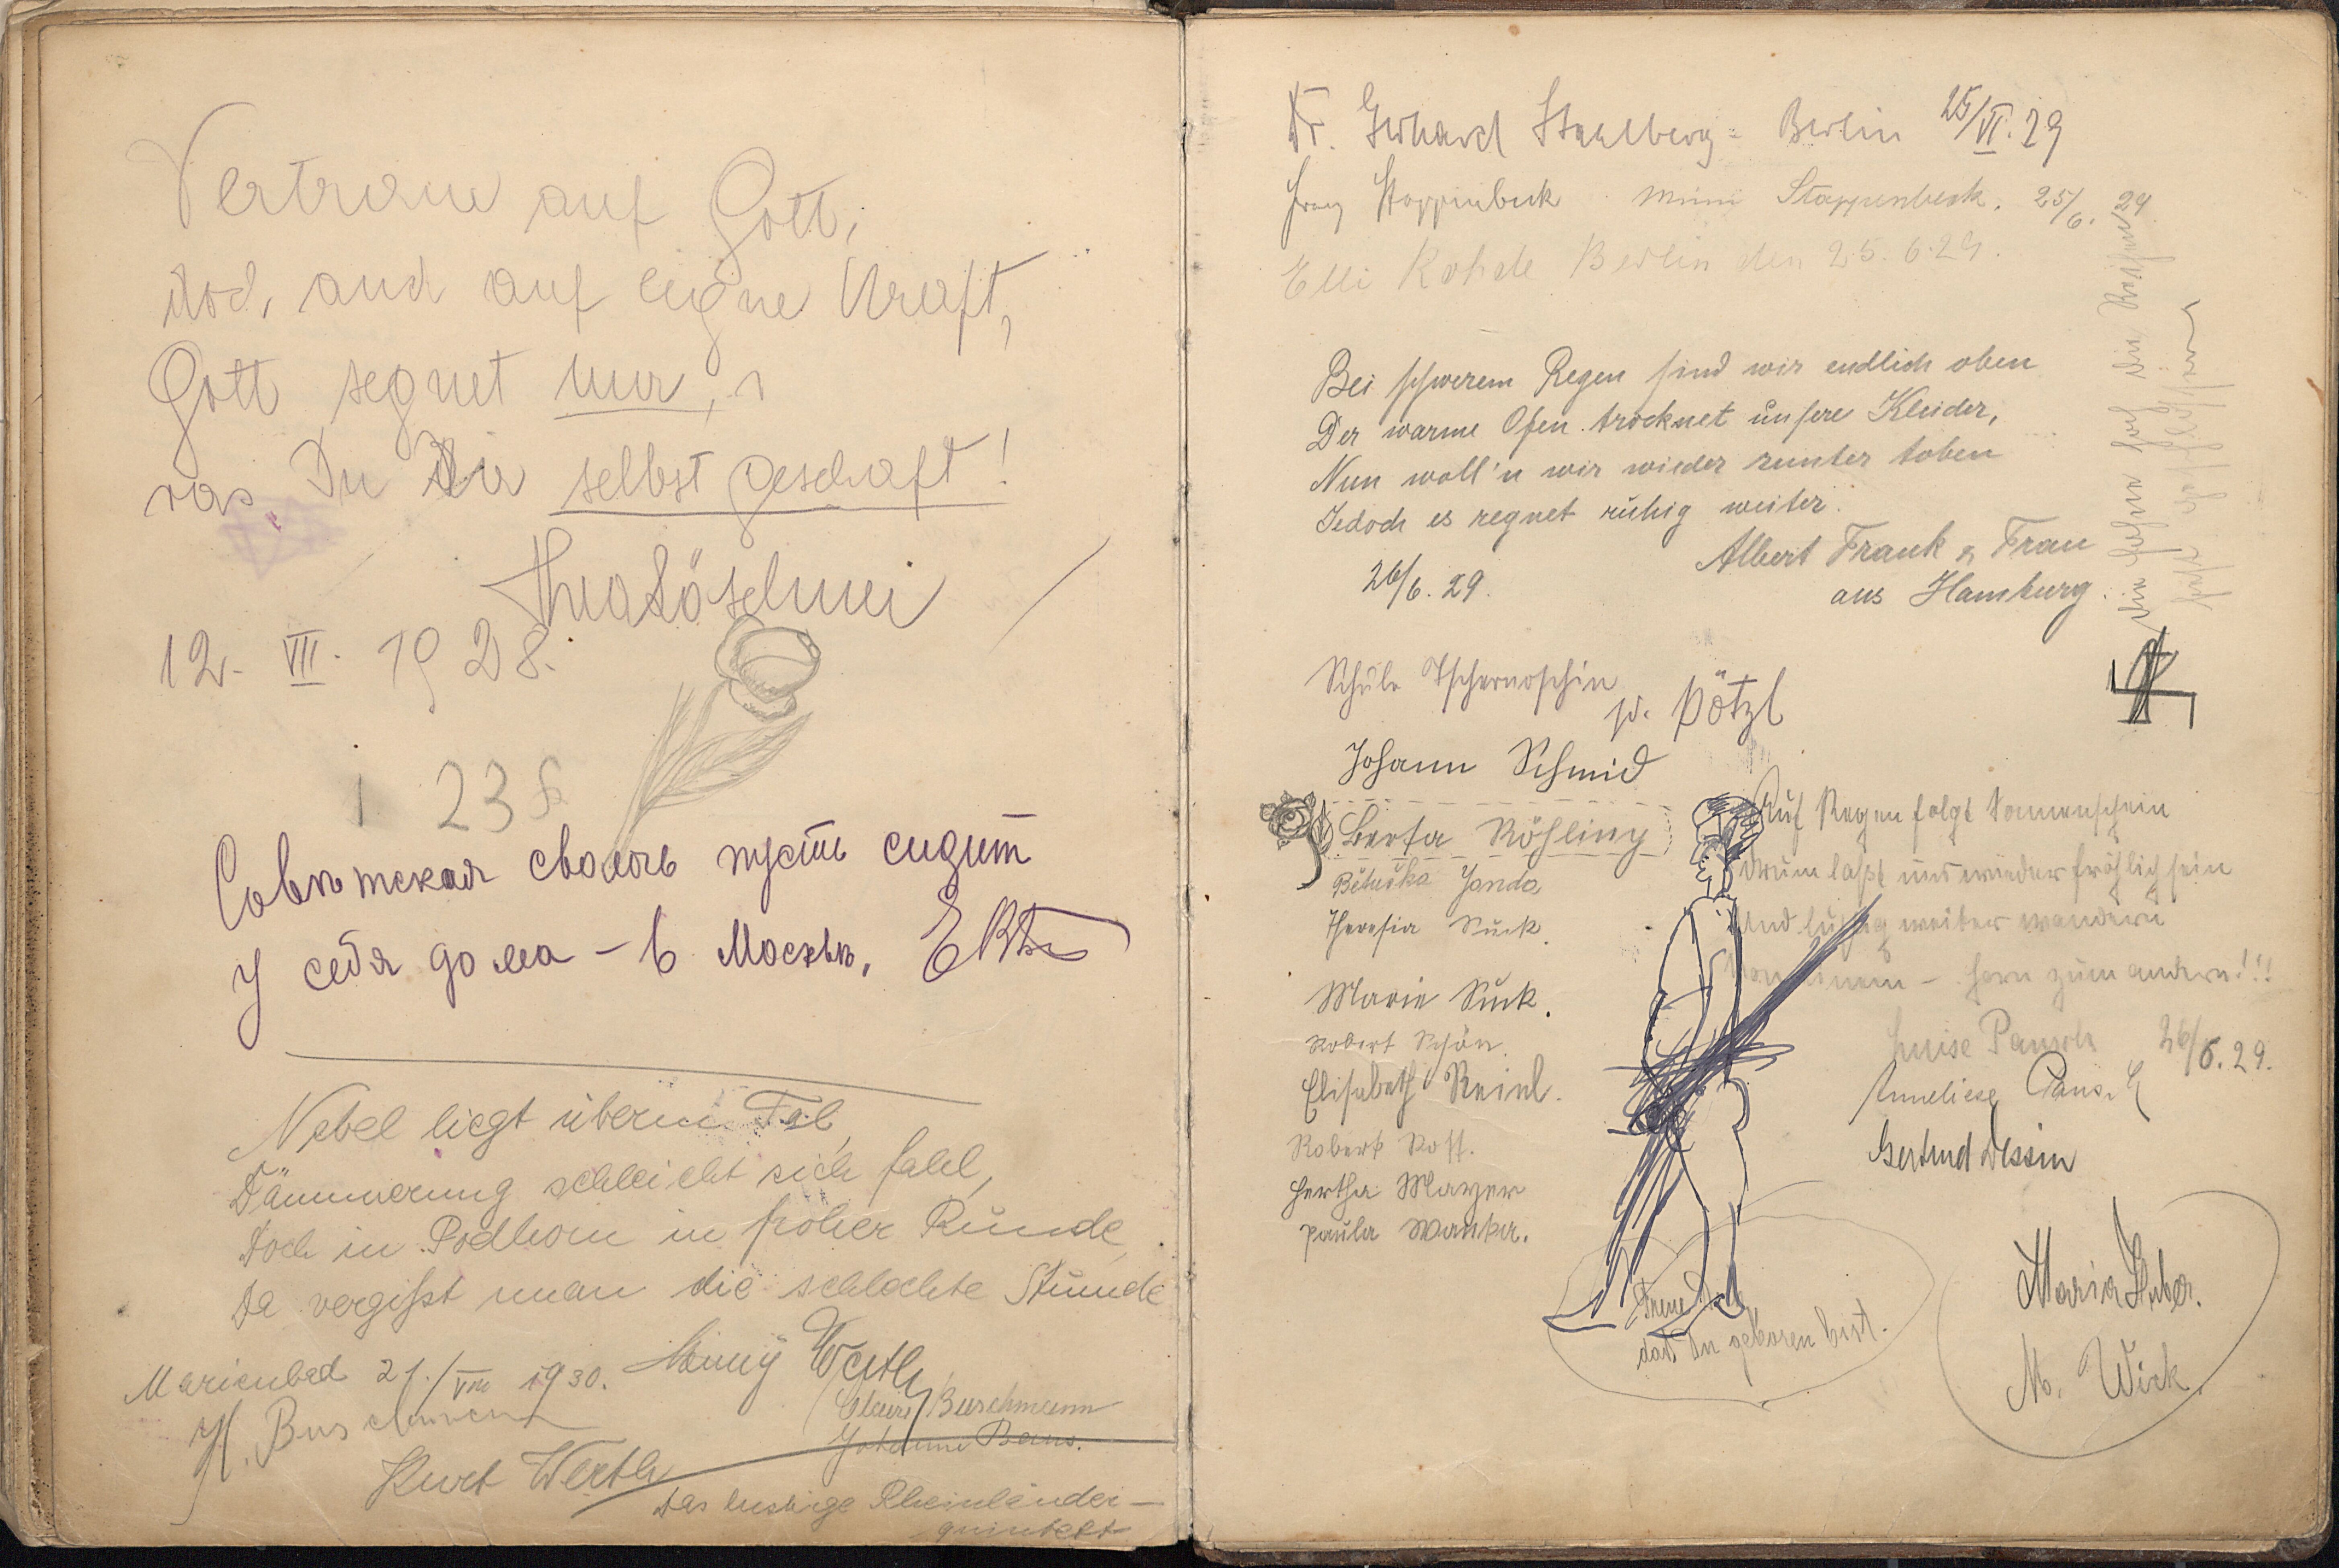 Vertraue auf Gott,
doch auch auf eigne Kraft,
Gott segnet nur,
was Du Dir selbst geschaft!
12. VII. 1928.
1 238
Совѣтская сволочь пусть сидит
у себя дома – в Москвѣ.
Nebel liegt überm Tal,
Dämmerung schleicht sich fahl,
Doch in Podhorn in froher Runde
Da vergißt man die schlechte Stunde
Marienbad 21./VIII 1930. Werth
H. Buschmann
Buschmann
Kurt Werth
Das lustige Rheinländer-
quintett
Dr. Gerhard Stahlberg - Berlin 25/VI. 29
Stappenbeck Mimi Stappenbeck. 25/6. 29
Elli Rohde Berlin den 25.6.29.
Bei schwerem Regen sind wir endlich oben
Der warme Ofen trocknet unsere Kleider,
Nun woll'n wir wieder runter toben
Jedoch es regnet ruhig weiter.
Albert Frank u. Frau
26/6. 29.
aus Hamburg.
Schule Tschernoschin
Pötzl
Johann Schmid
Berta Köhling
Bětuška Janda
Theresia Suck.
Marie Suck.
Robert Schön.
Elisabeth Reinl.
Robert
Hertha Mayer
Paula Wanka.
Auf Regen folgt Sonnenschein
Drum laßt uns wieder fröhlich sein
Und lustig weiter wandern
Von einem - Horn zum andern!!!
Luise 26/6.29.
Anneliese
Gertrud Dessin
Freue Dich,
daß Du geboren bist.
Maria Huber.
M. Wick.